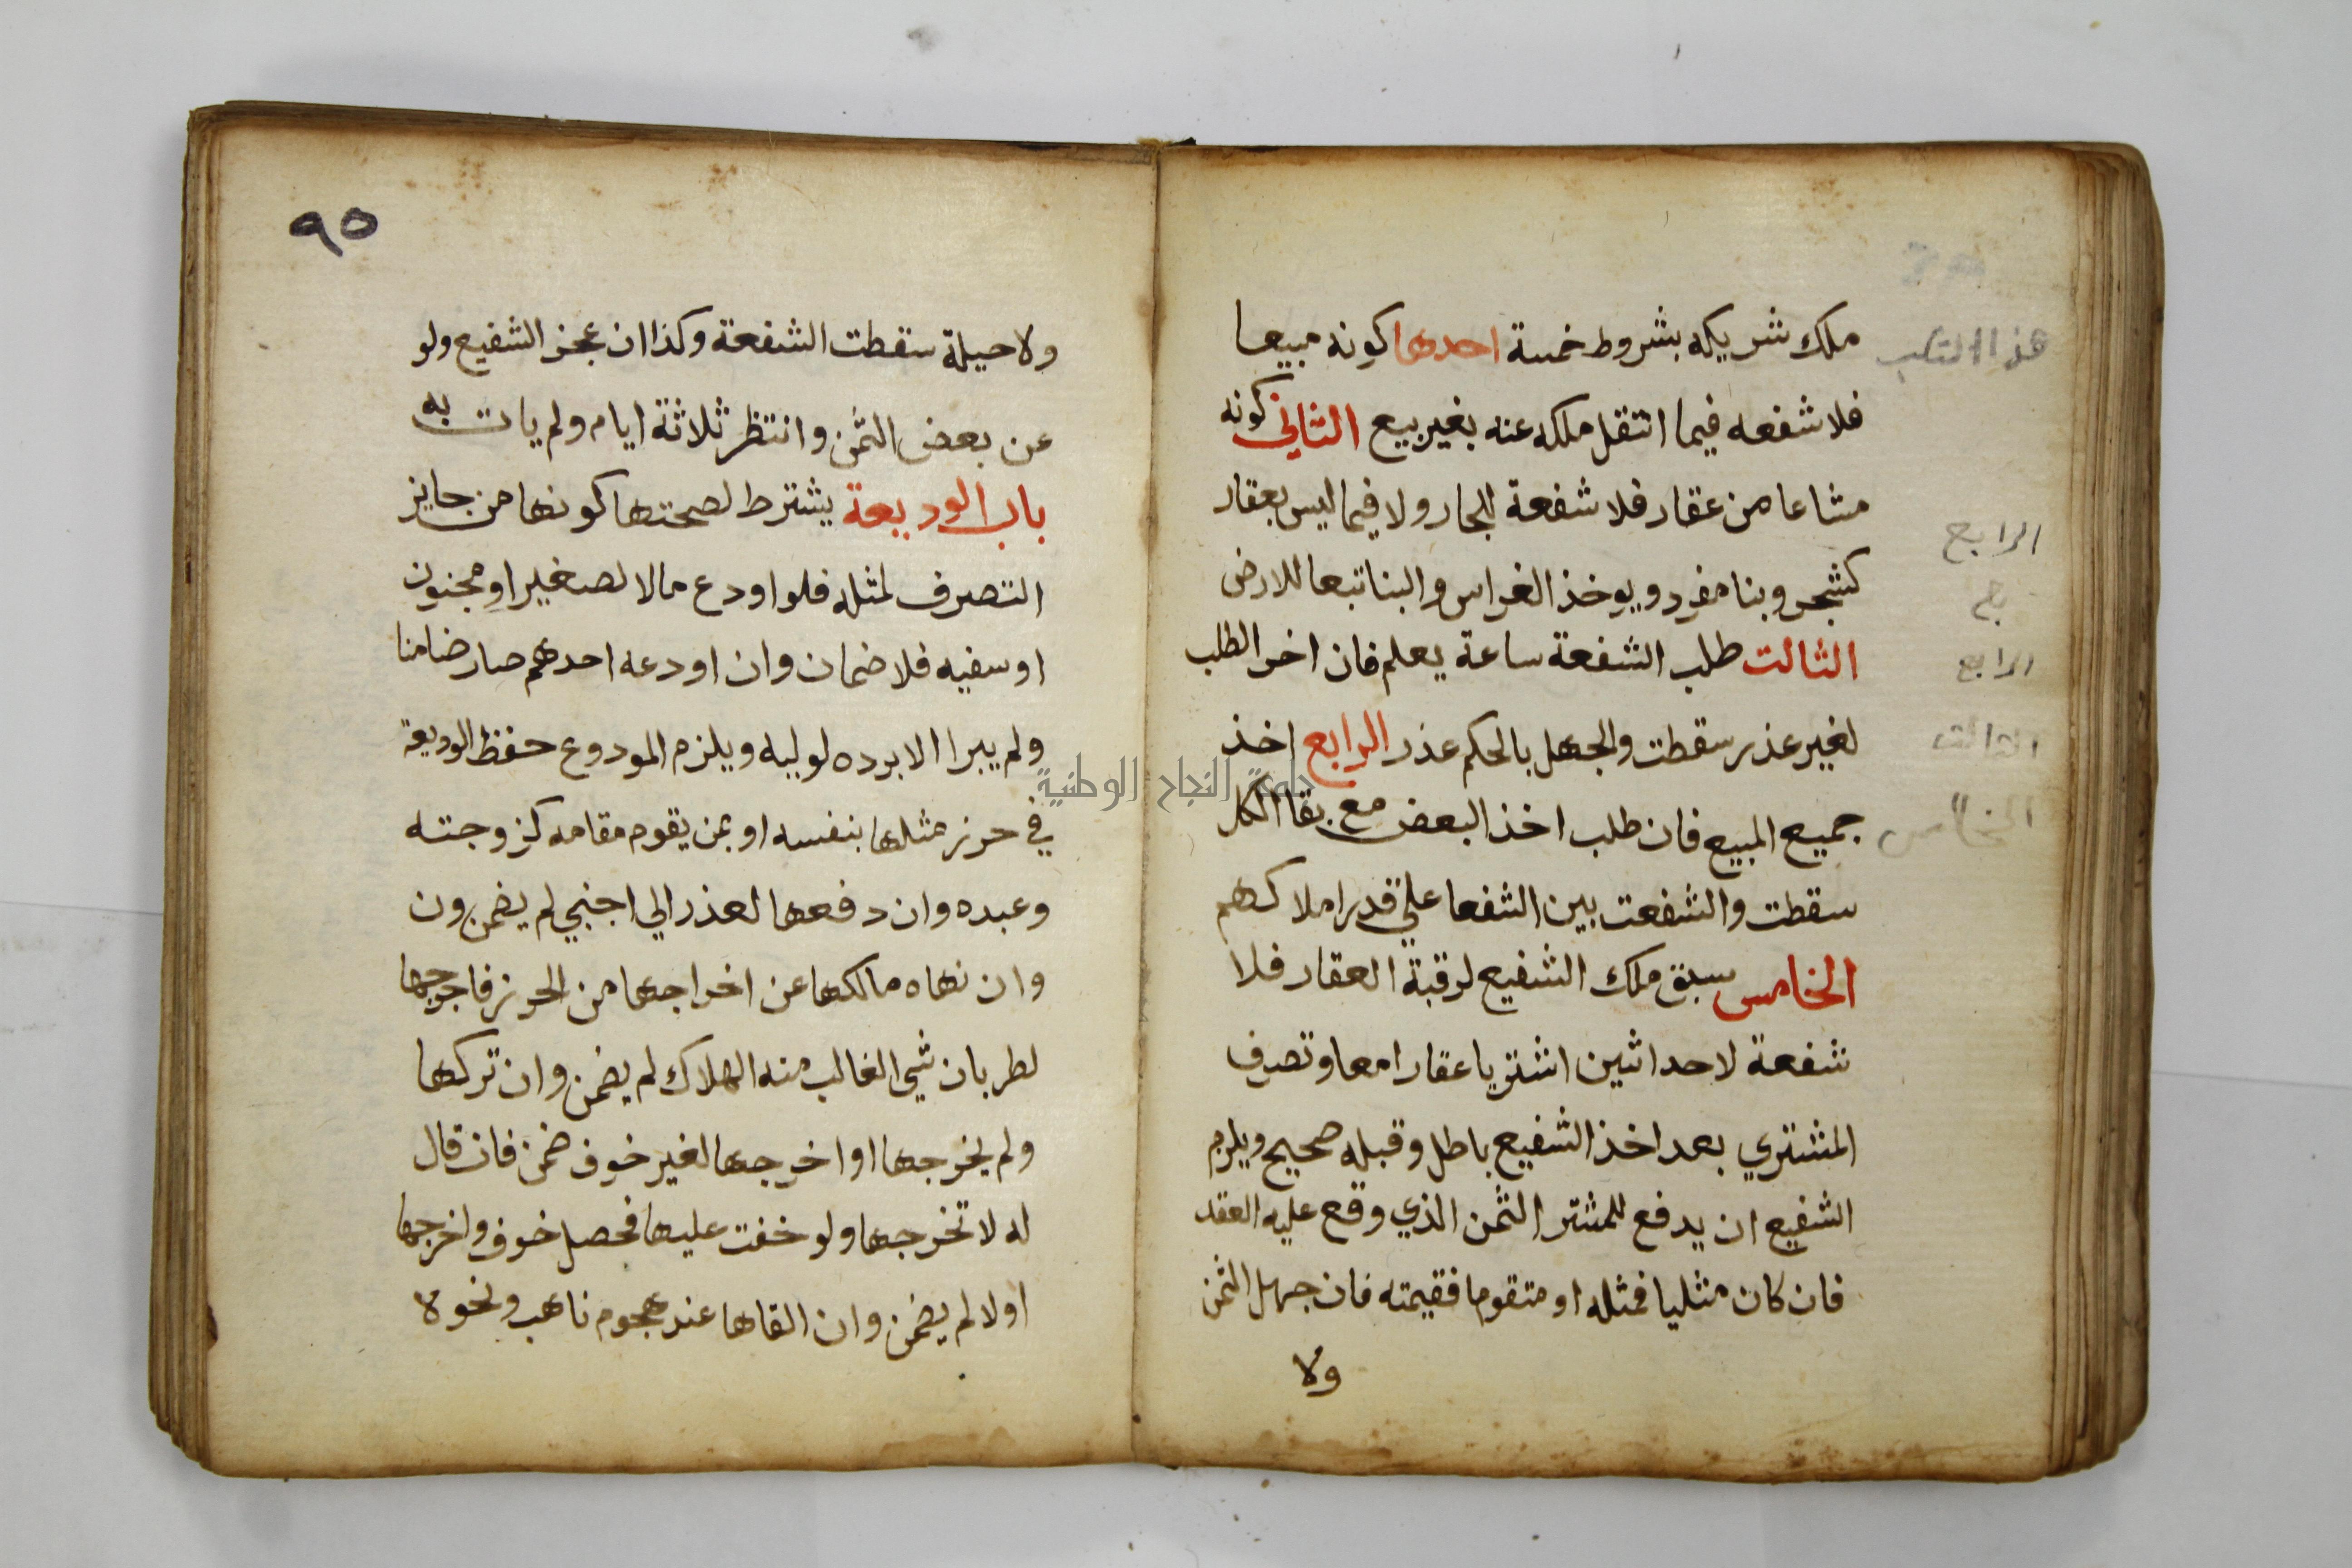 ملك شريكه بشروط خمسة احدها كونه مبيعا
فلا شفعه فيما انتقل ملكه عنه بغير بيع الثاني كونه
مشاعا من عقار فلا شفعة للجار ولا فيما ليس بعقار
كشجر وبنا مفرد ويوخذ الغراس والبنا تبعا للارض
الثالث طلب الشفعة ساعة يعلم فان اخر الطلب
لغير عذر سقطت والجهل بالحكم عذر الرابع اخذ
جميع المبيع فان طلب اخذ البعض مع بقا الكل
سقطت والشفعت بين الشفعا علي قدر املاكهم
الخامس سبق ملك الشفيع لرقبة العقار فلا
شفعة لاحد اثنين اشتريا عقارا معا وتصرف
المشتري بعد اخذ الشفيع باطل وقبله صحيح ويلزم
الشفيع ان يدفع للمشتر الثمن الذي وقع عليه العقد
فان كان مثليا فمثله او متقوما فقيمته فان جهل الثمن
ولا
الرابع
الرابع
الثالث
الخامس
٩٥
ولا حيلة سقطت الشفعة وكذا ان عجز الشفيع ولو
عن بعض الثمن وانتظر ثلاثة ايام ولم يات به
باب الوديعة يشترط لصحتها كونها من جايز
التصرف لمثله فلو اودع مالا لصغير او مجنون
او سفيه فلا ضمان وان اودعه احدهم صار ضامنا
ولم يبرا الا برده لوليه ويلزم المودوع حفظ الوديعة
في حرز مثلها بنفسه او بمن يقوم مقامه كزوجته
وعبده وان دفعها لعذر الي اجنبي لم يضمن
وان نهاه مالكها عن اخراجها من الحرز فاخرجها
لطريان شي الغالب منه الهلاك لم يضمن وان تركها
ولم يخرجها او اخرجها لغير خوف ضمن فان قال
له لا تخرجها ولو خفت عليها فحصل خوف واخرجها
اولا لم يضمن وان القاها عند هجوم ناهب ونحوه
جامعة النجاح الوطنية